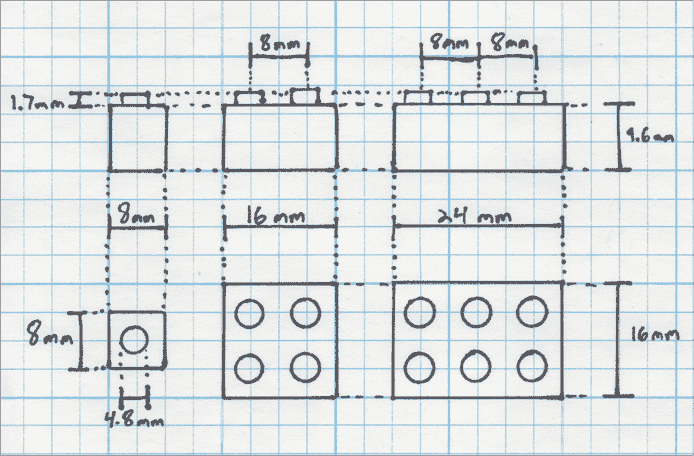 8mm
8mm 8mm
1.7mm
9.6mm
8mm
16mm
24 mm
8mm
16mm
4.8mm